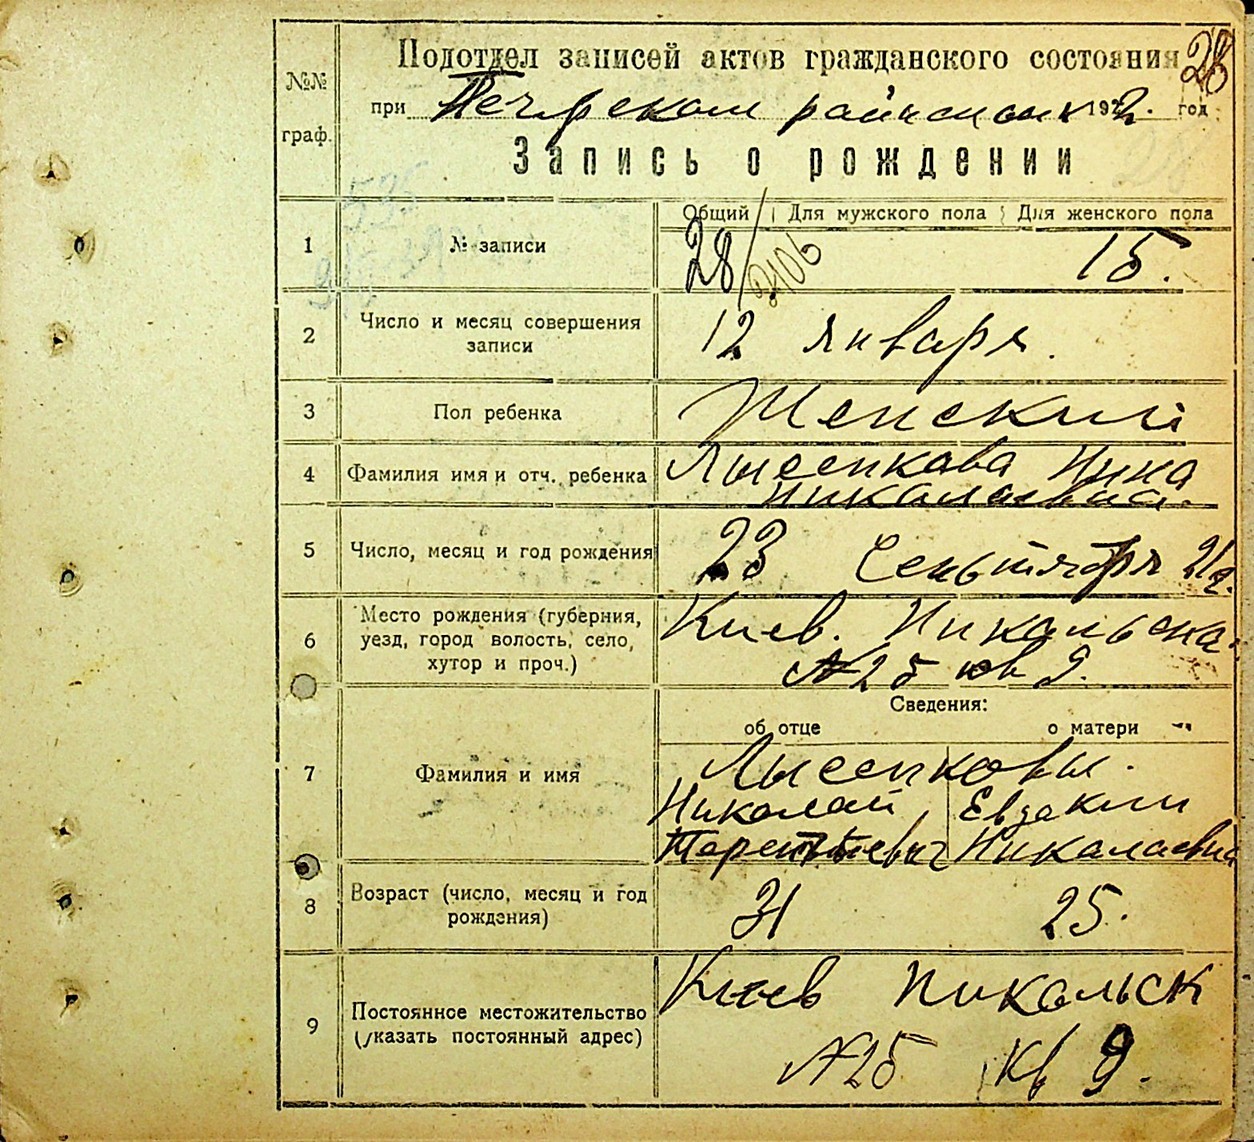 Подотдел записей актов гражданского состояния 28
№№ граф.
при Печерском 1922. год
Запись о рождении
Общий Для мужского пола Для женского пола
1 № записи 28/2106 15.
2 Число и месяц совершения записи 12 января.
3 Пол ребенка Женский
4 Фамилия имя и отч. ребенка Лысенкова Нина
Николаевна.
5 Число, месяц и год рождения 23 Сеньтября 21 г.
6 Место рождения (губерния, Киев. Никольска
уезд, город волость, село, №25 кв 9.
хутор и проч.)
Сведения:
об отце о матери
Лысенковы.
7 Фамилия и имя Николай Евдокия
Терентьевич Николаевна
8 Возраст (число, месяц и год рождения) 31 25.
9 Постоянное местожительство Киев Никольск
(указать постоянный адрес) №25 кв 9.